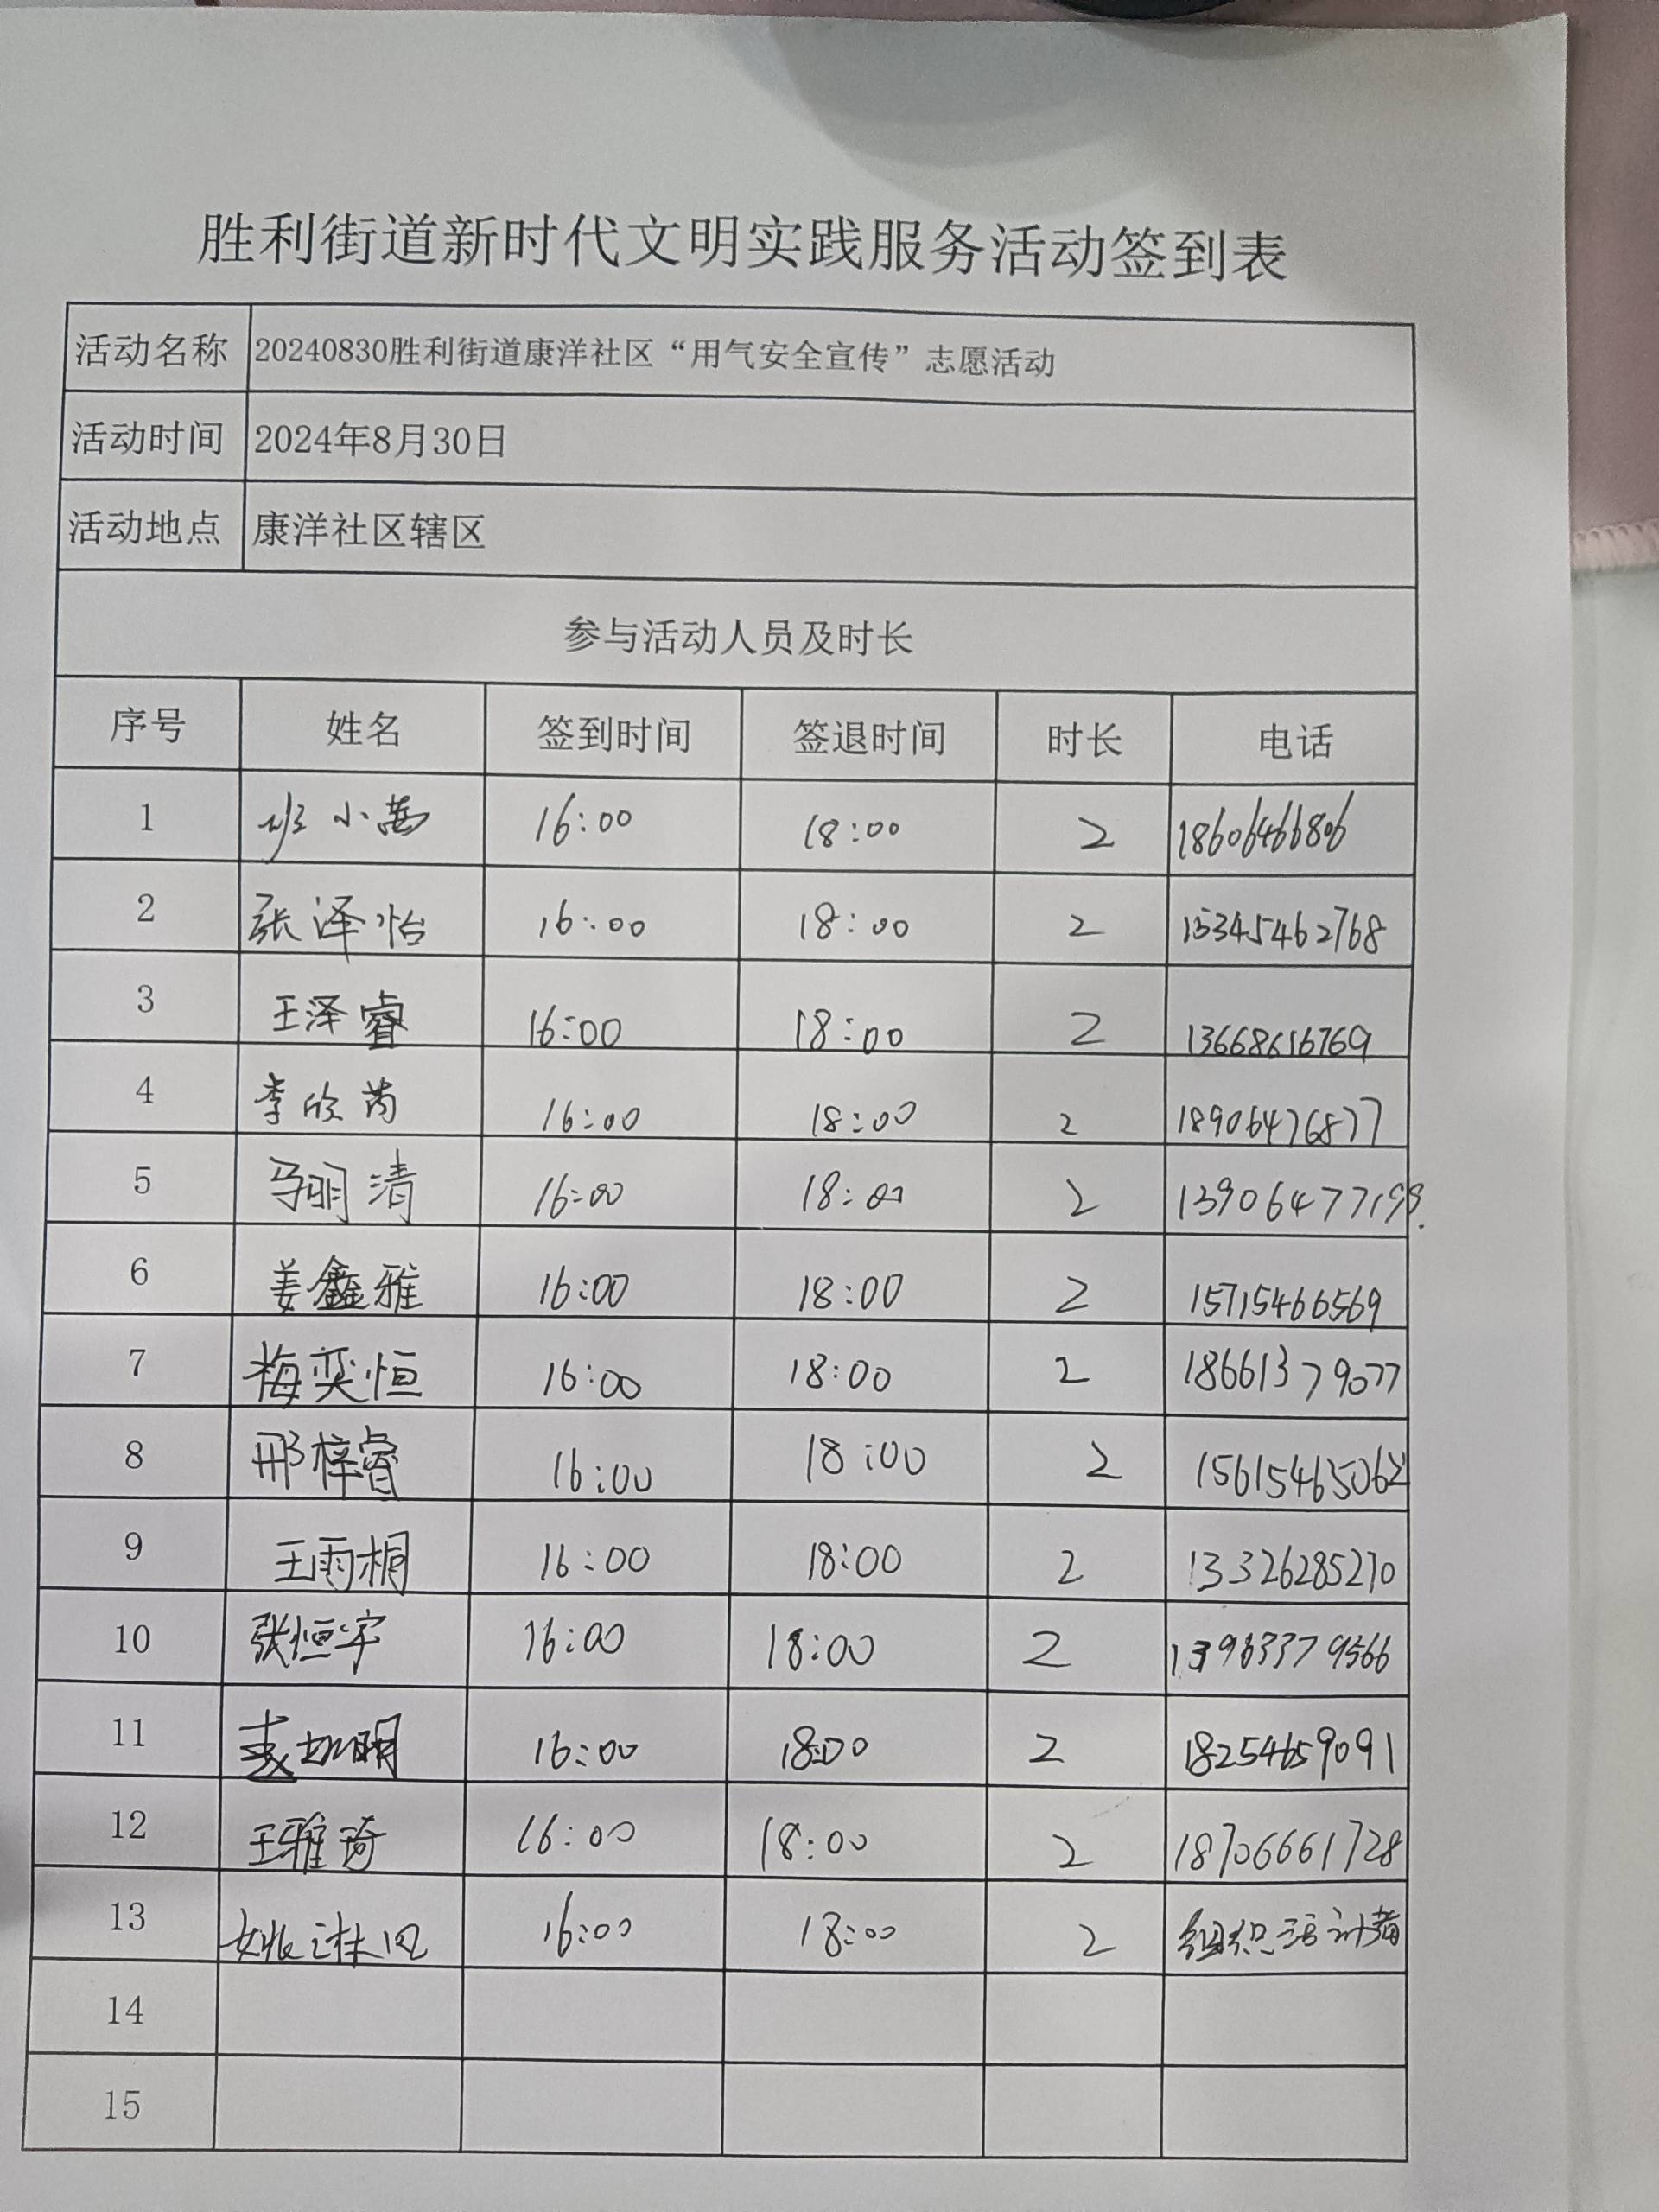 胜利街道新时代文明实践服务活动签到表
活动名称 20240830胜利街道康洋社区“用气安全宣传”志愿活动
活动时间 2024年8月30日
活动地点 康洋社区辖区
参与活动人员及时长
序号 姓名 签到时间 签退时间 时长 电话
1 班小 16:00 18:00 2 18606466806
2 张泽怡 16:00 18:00 2 15345462768
3 王泽睿 16:00 18:00 2 13668616769
4 李欣芮 16:00 18:00 2 18906476877
5 马明清 16:00 18:00 2
6 姜鑫雅 16:00 18:00 2 15715466569
7 梅奕恒 16:00 18:00 2 18661379077
8 邢梓睿 16:00 18:00 2
9 王雨桐 16:00 18:00 2 13326285270
10 张恒宇 16:00 18:00 2
11 16:00 18:00 2 18254659091
12 王雅琦 16:00 18:00 2 18706661728
13 姚 16:00 18:00 2 组织活动者
14
15